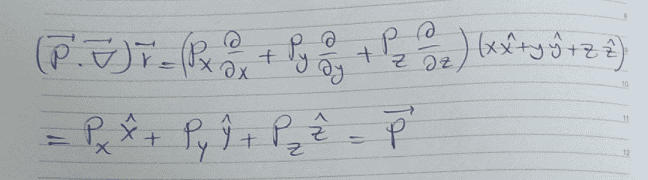 (P⃗.∇⃗)r⃗ = (Pₓ ∂/∂x + P_y ∂/∂y + P_z ∂/∂z) (xx̂+yŷ+zẑ)
= Pₓ x̂ + P_y ŷ + P_z ẑ = P⃗